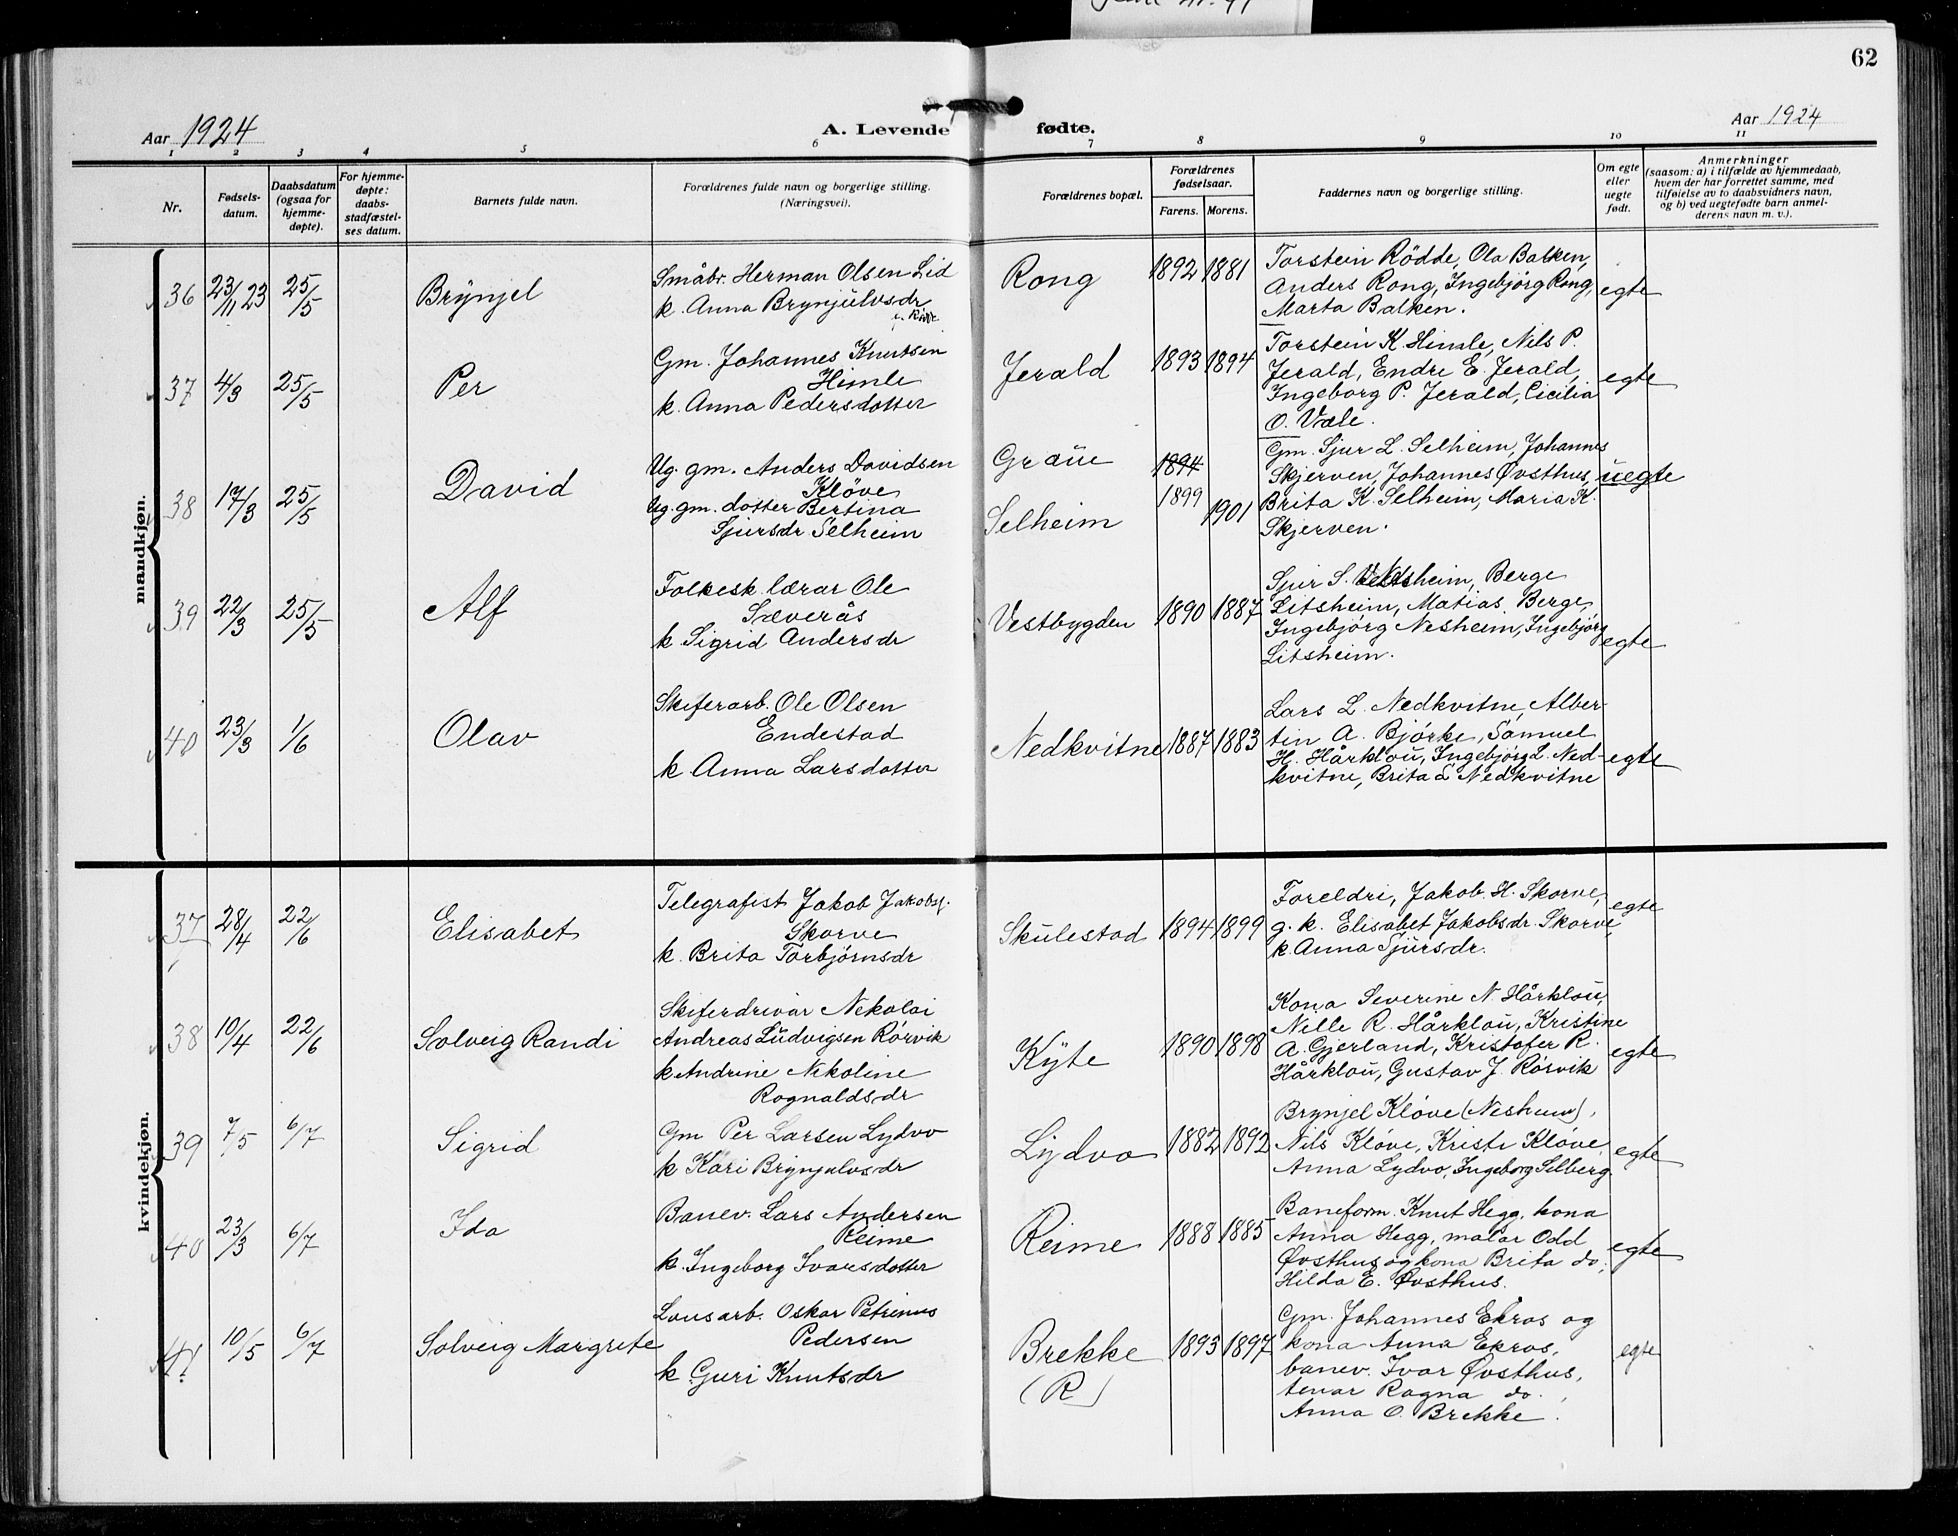 62
Aar 1924
A. Levende fødte.
Aar 1924
1 2 3 4 5 6 7 8 9 10 11
Nr.
Fødsels-
datum.
Daabsdatum
(ogsaa for
hjemme-
døpte).
For hjemme-
døpte:
daabs-
stadfæstel-
ses datum.
Barnets fulde navn.
Forældrenes fulde navn og borgerlige stilling.
(Næringsvei).
Forældrenes bopæl.
Forældrenes
fødselsaar.
Farens. Morens.
Faddernes navn og borgerlige stilling.
Om egte
eller
uegte
født.
Anmerkninger
(saasom: a) i tilfælde av hjemmedaab,
hvem der har forrettet samme, med
tilføielse av to daabsvidners navn,
og b) ved uegtefødte barn anmel-
derens navn m. v.).
mandkjøn.
36 23/11 23 25/5 Brynjel
Småbr. Herman Olsen Lid
k. Anna Brynjulvsdr
Rong 1892 1881
Torstein Rödde, Ola Balken,
Anders Rong, Ingebjörg Rong,
Marta Balken.
egte
37 4/3 25/5 Per
Gm. Johannes Knutsen
Himle
k. Anna Pedersdotter
Jerald 1893 1894
Torstein K. Himle, Nils P.
Jerald, Endre E. Jerald,
Ingeborg P. Jerald, Cicilia
O. Væle.
egte
38 17/3 25/5 David
Ug. gm. Anders Davidsen
Kløve
Ug. gm. dotter Bertina
Sjursdr Selheim
Graue 1894
1899
Selheim 1901
Gm. Sjur L. Selheim, Johannes
Skjerven, Johannes Øvsthus,
Brita K. Selheim, Maria K.
Skjerven.
uegte
39 22/3 25/5 Alf
Folkesk. lærar Ole
Sæverås
k. Sigrid Andersdr
Vestbygden 1890 1887
Sjur S. Nesheim, Berge
Litsheim, Matias Berge,
Ingebjörg Nesheim, Ingebjörg
Litsheim.
egte
40 23/3 1/6 Olav
Skiferarb. Ole Olsen
Endestad
k. Anna Larsdotter
Nedkvitne 1887 1883
Lars L. Nedkvitne, Alber-
tin A. Bjørke, Samuel
H. Hårklou, Ingebjörg L. Ned-
kvitne, Brita L Nedkvitne
egte
kvindekjøn.
37 28/4 22/6 Elisabet
Telegrafist Jakob Jakobs.
Skorve
k. Brita Torbjørnsdr
Skulestad 1894 1899
Foreldri, Jakob H. Skorve,
g. k. Elisabet Jakobsdr. Skorve
k. Anna Sjursdr.
egte
38 10/4 22/6 Solveig Randi
Skiferdrivar Nekolai
Andreas Ludvigsen Rørvik
k. Andrine Nekoline
Rognaldsdr
Kyte 1890 1898
Kona Severine N. Hårklou,
Nille R. Hårklou, Kristine
A. Gjerland, Kristofer R.
Hårklou, Gustav J. Rørvik
egte
39 7/5 6/7 Sigrid
Gm Per Larsen Lydvo
k. Kari Brynjulvsdr
Lydvo 1882 1892
Brynjel Kløve (Nesheim),
Nils Kløve, Kristi Kløve,
Anna Lydvo, Ingeborg Selberg
egte
40 23/3 6/7 Ida
Banev. Lars Andersen
Reime
k. Ingeborg Ivarsdotter
Reime 1888 1885
Baneform. Knut Hegg, kona
Anna Hegg, malar Odd
Øvsthus og kona Brita do,
Hilda E. Øvsthus.
egte
41 10/5 6/7 Solveig Margrete
Lausarb. Oskar Petrinus
Pedersen
k. Guri Knutsdr
Brekke
(R)
1893 1897
Gm. Johannes Ekras og
kona Anna Ekras,
banev. Ivar Øvsthus,
tenar Ragna do.
Anna O. Brekke.
egte